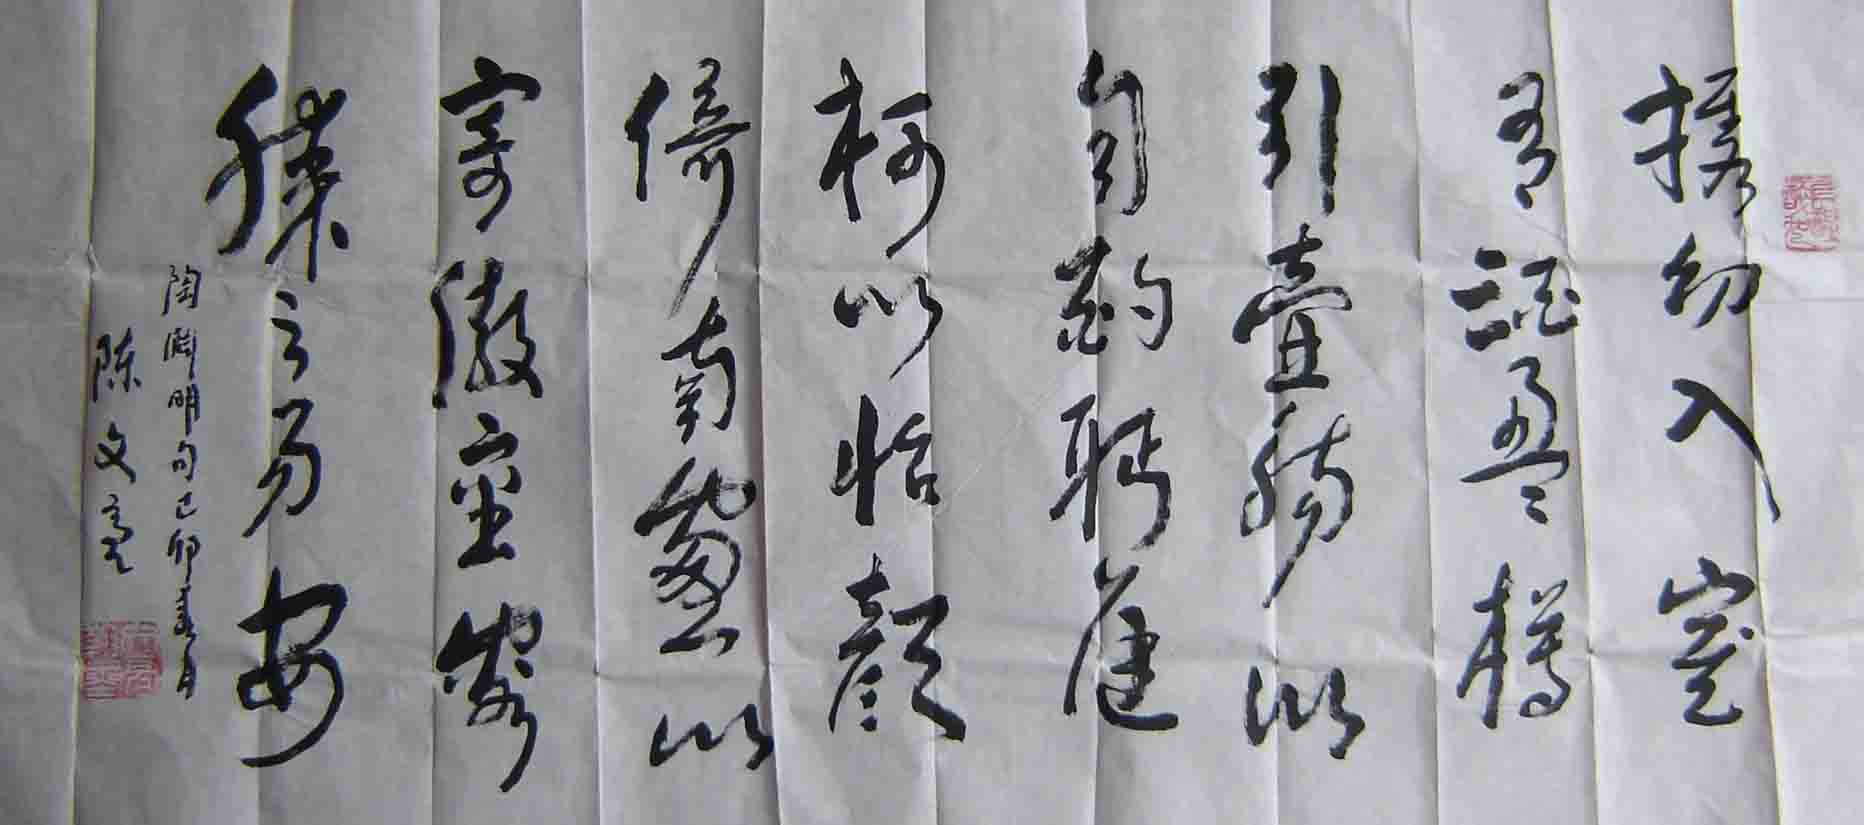 携幼入室
有酒盈樽
引壺觴以
自酌眄庭
柯以怡顔
倚南窗以
寄傲審容
膝之易安
陶淵明句己卯春月
陈文亮